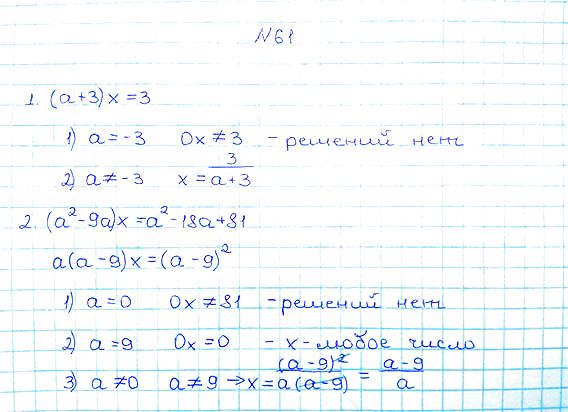 №61
1. (a+3)x=3
1) a=-3 0x≠3 - решений нет
2) a≠-3 x=3/(a+3)
2. (a²-9a)x=a²-18a+81
a(a-9)x=(a-9)²
1) a=0 0x≠81 - решений нет
2) a=9 0x=0 - x-любое число
3) a≠0 a≠9 → x=(a-9)²/a(a-9) = (a-9)/a